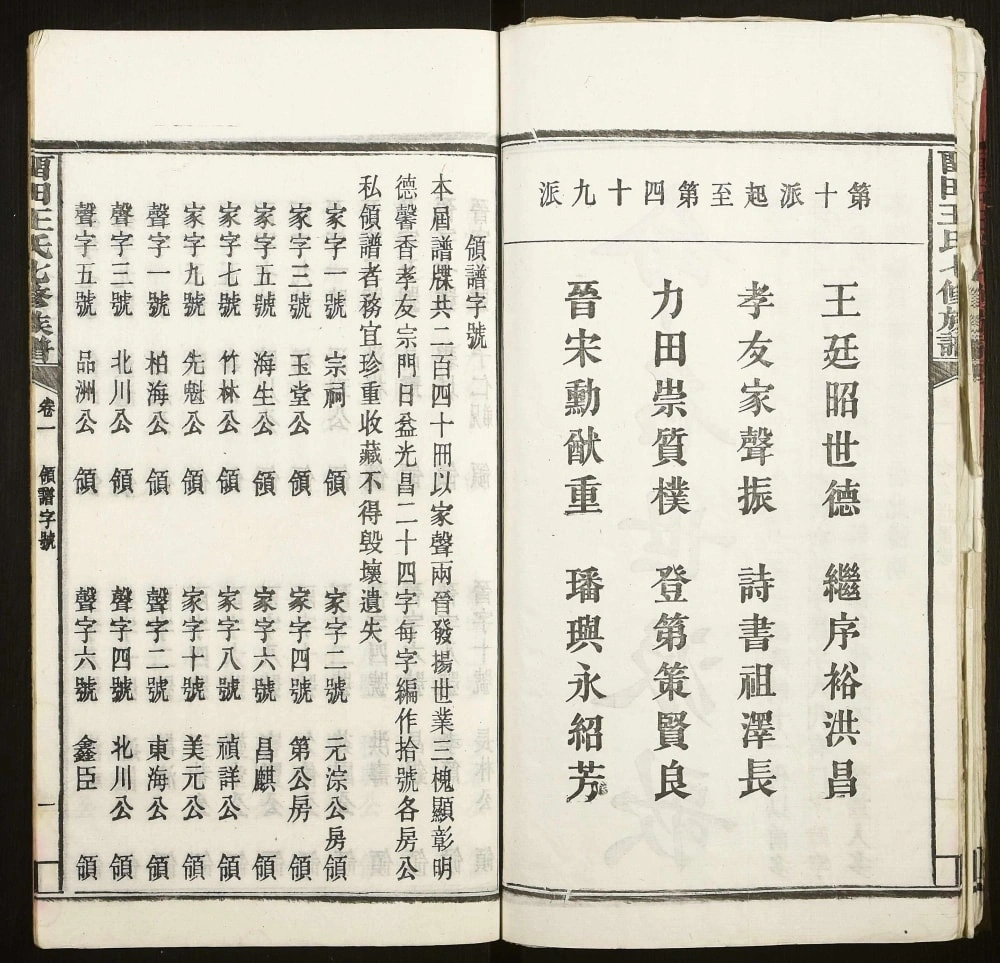 第十派起至第四十九派
王廷昭世德　繼序裕洪昌
孝友家聲振　詩書祖澤長
力田崇質樸　登第策賢良
晉宋勳猷重　璠璵永紹芳
領譜字號
本屆譜牒共二百四十冊以家聲兩晉發揚世業三槐顯彰明
德馨香孝友宗門日益光昌二十四字每字編作拾號各房公
私領譜者務宜珍重收藏不得毀壞遺失
家字一號　宗祠　領　家字二號　元淙公房領
家字三號　玉堂公　領　家字四號　第公房　領
家字五號　海生公　領　家字六號　昌麒　領
家字七號　竹林公　領　家字八號　禎詳公　領
家字九號　先魁公　領　家字十號　美元公　領
聲字一號　柏海公　領　聲字二號　東海公　領
聲字三號　北川公　領　聲字四號　北川公　領
聲字五號　品洲公　領　聲字六號　鑫臣　領
田王氏七修族譜　卷一　領譜字號　一